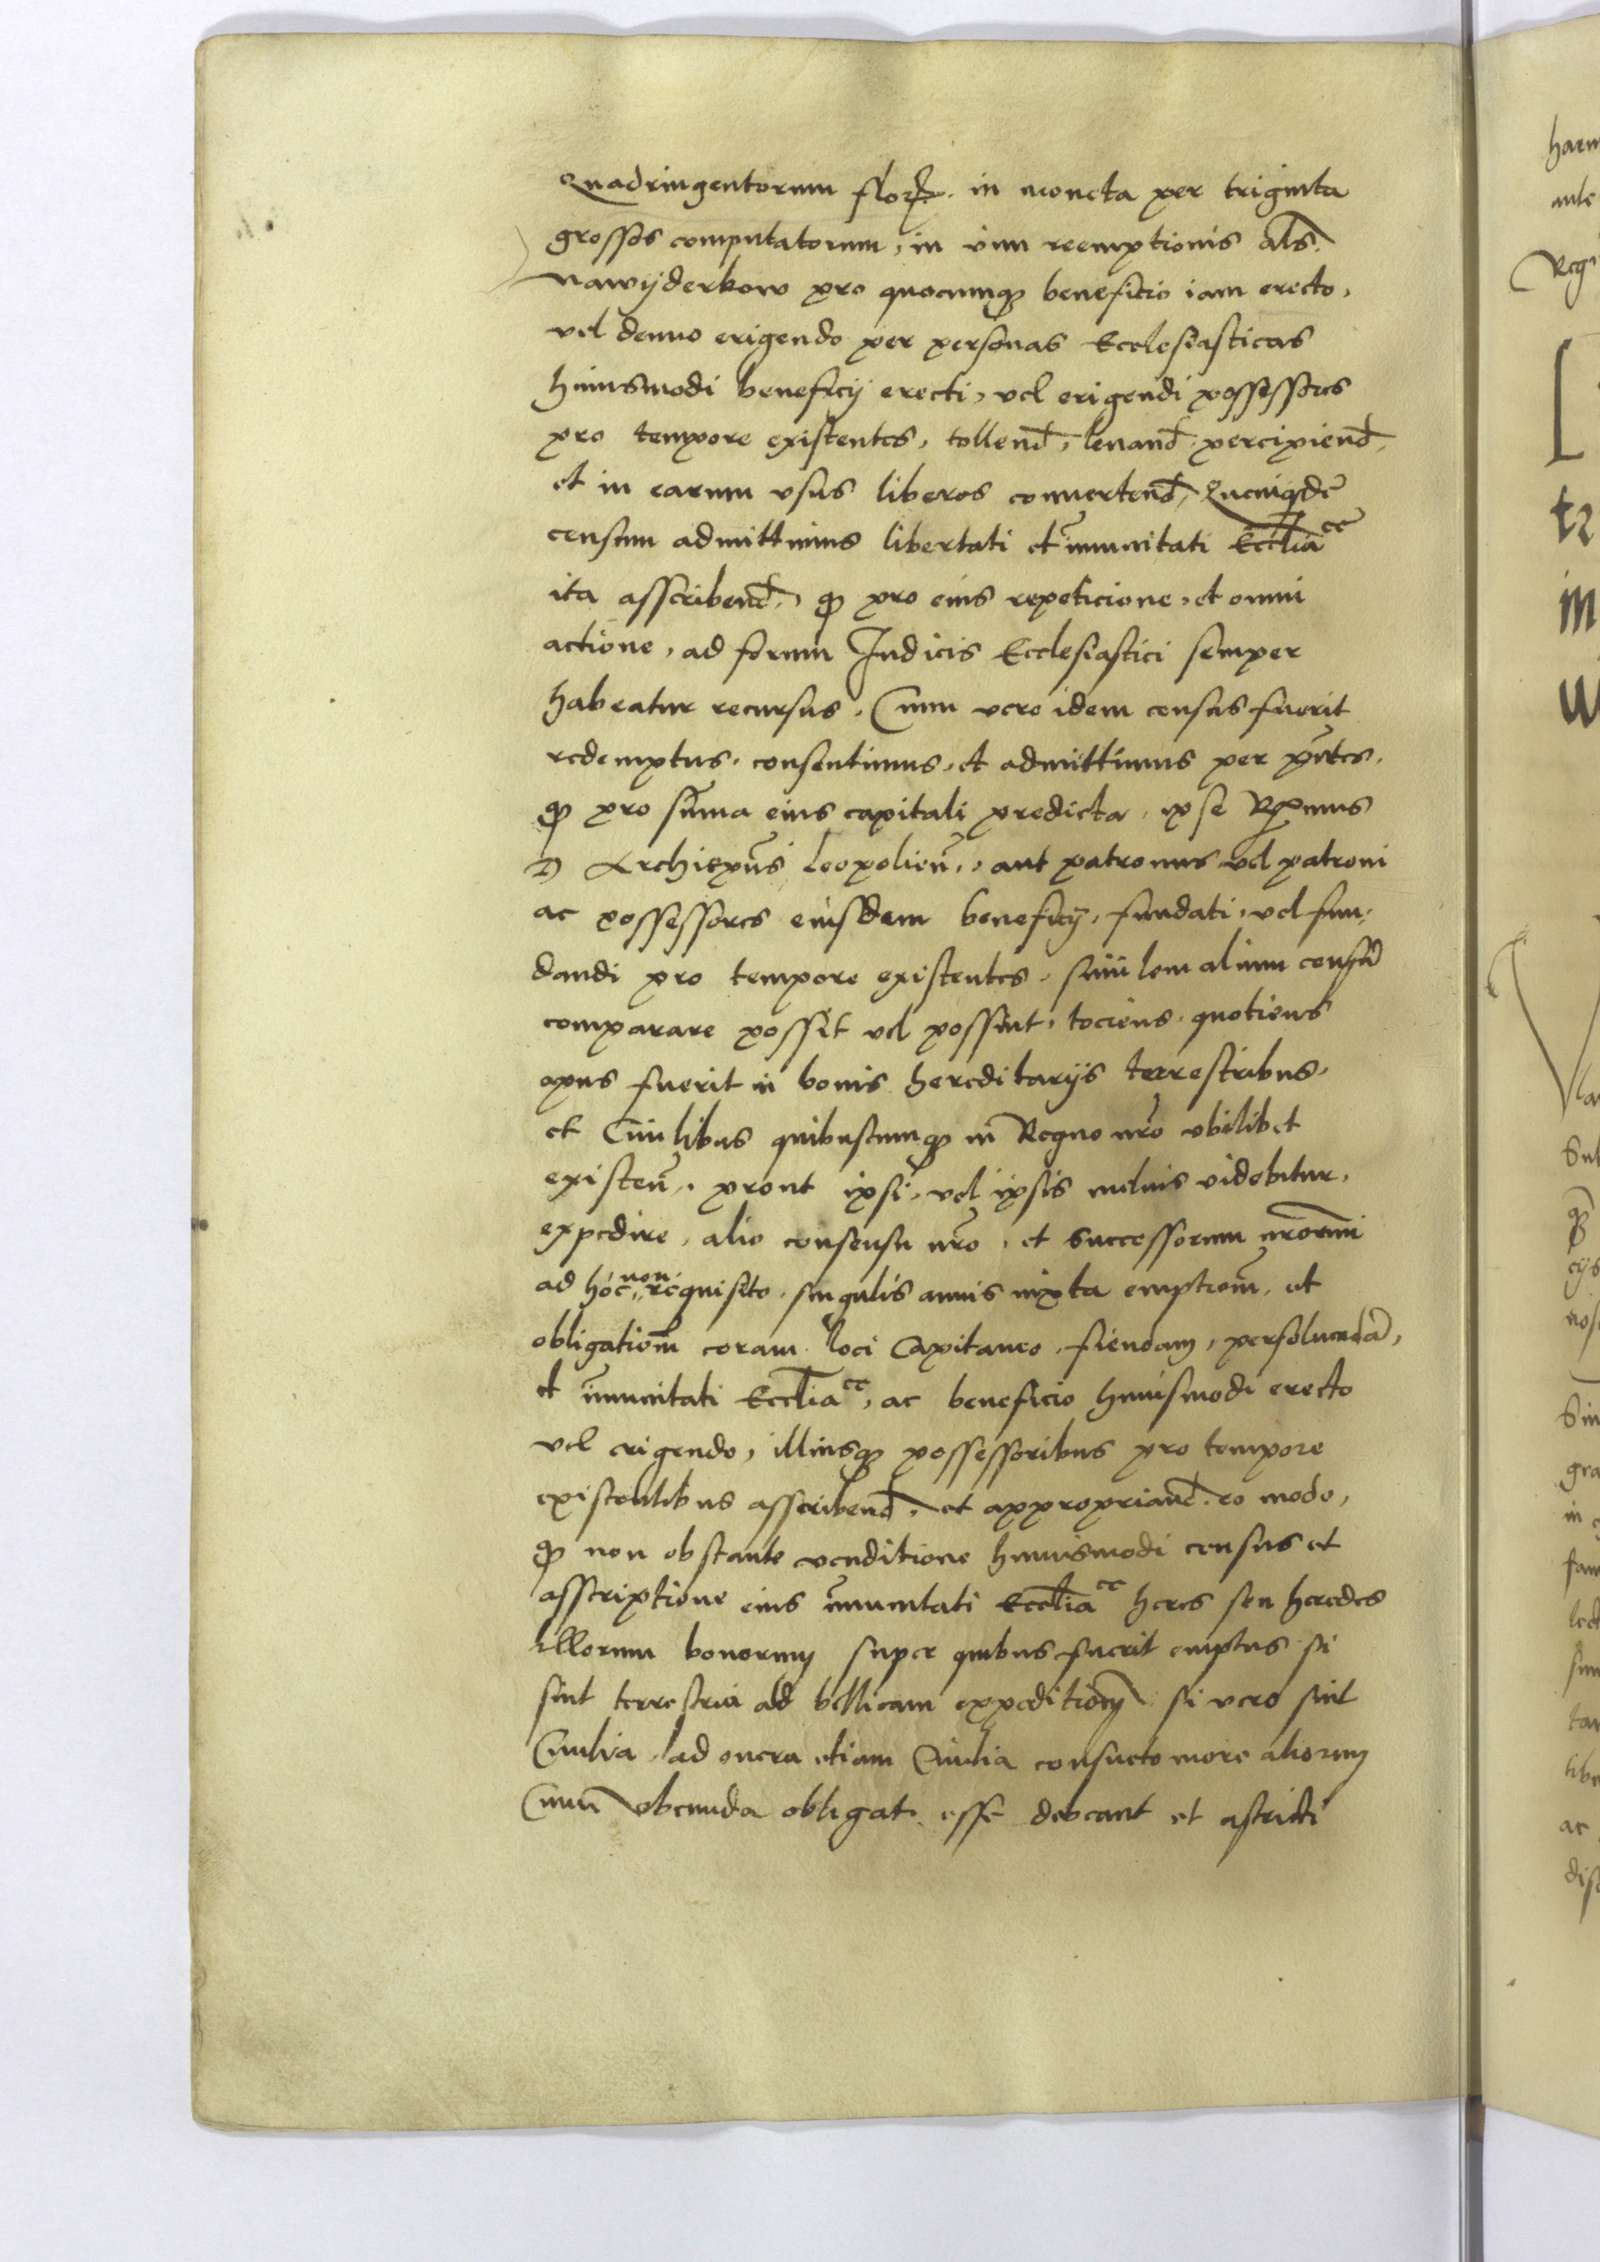 Quadringentorum flor. in moneta per triginta
grossos computatorum, in vim reemptionis als.
nawyderkow pro quocumq beneficio iam erecto,
vel denuo erigendo per personas Ecclesiasticas
huiusmodi beneficij erecti, vel erigendi possessores
pro tempore existentes, tollend, leuand, percipiend,
et in earum vsus liberos conuertend,
censum admittimus libertati et immunitati Eccliace
ita asscribend, q pro eius repeticione, et omni
actione, ad forum Judicis Ecclesiastici semper
habeatur recursus. Cum vero idem census fuerit
redemptus, consentimus, et admittimus per pntes,
q pro suma eius capitali predicta, ipse Rmus
D Archiepus Leopolien, aut patronus vel patroni
ac possessores eiusdem beneficij, fundati, vel fun,
dandi pro tempore existentes, similem alium censu
comparare possit vel possint, tociens, quotiens
opus fuerit in bonis hereditarijs terrestribus,
et Ciuilibus quibuscumq in Regno nro vbilibet
existen, prout ipsi, vel ipsis melius videbitur,
expedire, alio consensu nro, et Successorum nrorum
ad hoc non requisito, singulis annis iuxta emptionem, et
obligationem coram loci Capitaneo fiendam, persoluenda,
et immunitati Eccliace, ac beneficio huiusmodi erecto
vel erigendo, illiusq possessoribus pro tempore
existentibus asscribend, et appropriand. eo modo,
q non obstante venditione huiusmodi census et
asscriptione eius immunitati Eccliace heres seu heredes
illorum bonorum super quibus fuerit emptus si
sint terrestria ad bellicam expeditionem si vero sint
Ciuilia, ad onera etiam Ciuilia consueto more aliorum
Ciuium obeunda obligati esse debeant et astricti